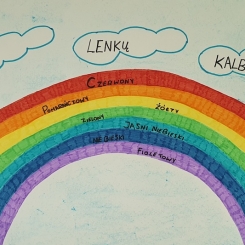 LENKŲ
KALB
CZERWONY
POMARAŃCZOWY
ŻÓŁTY
ZIELONY
JASNI NIEBIESKI
NIEBIESKI
FIOLETOWY